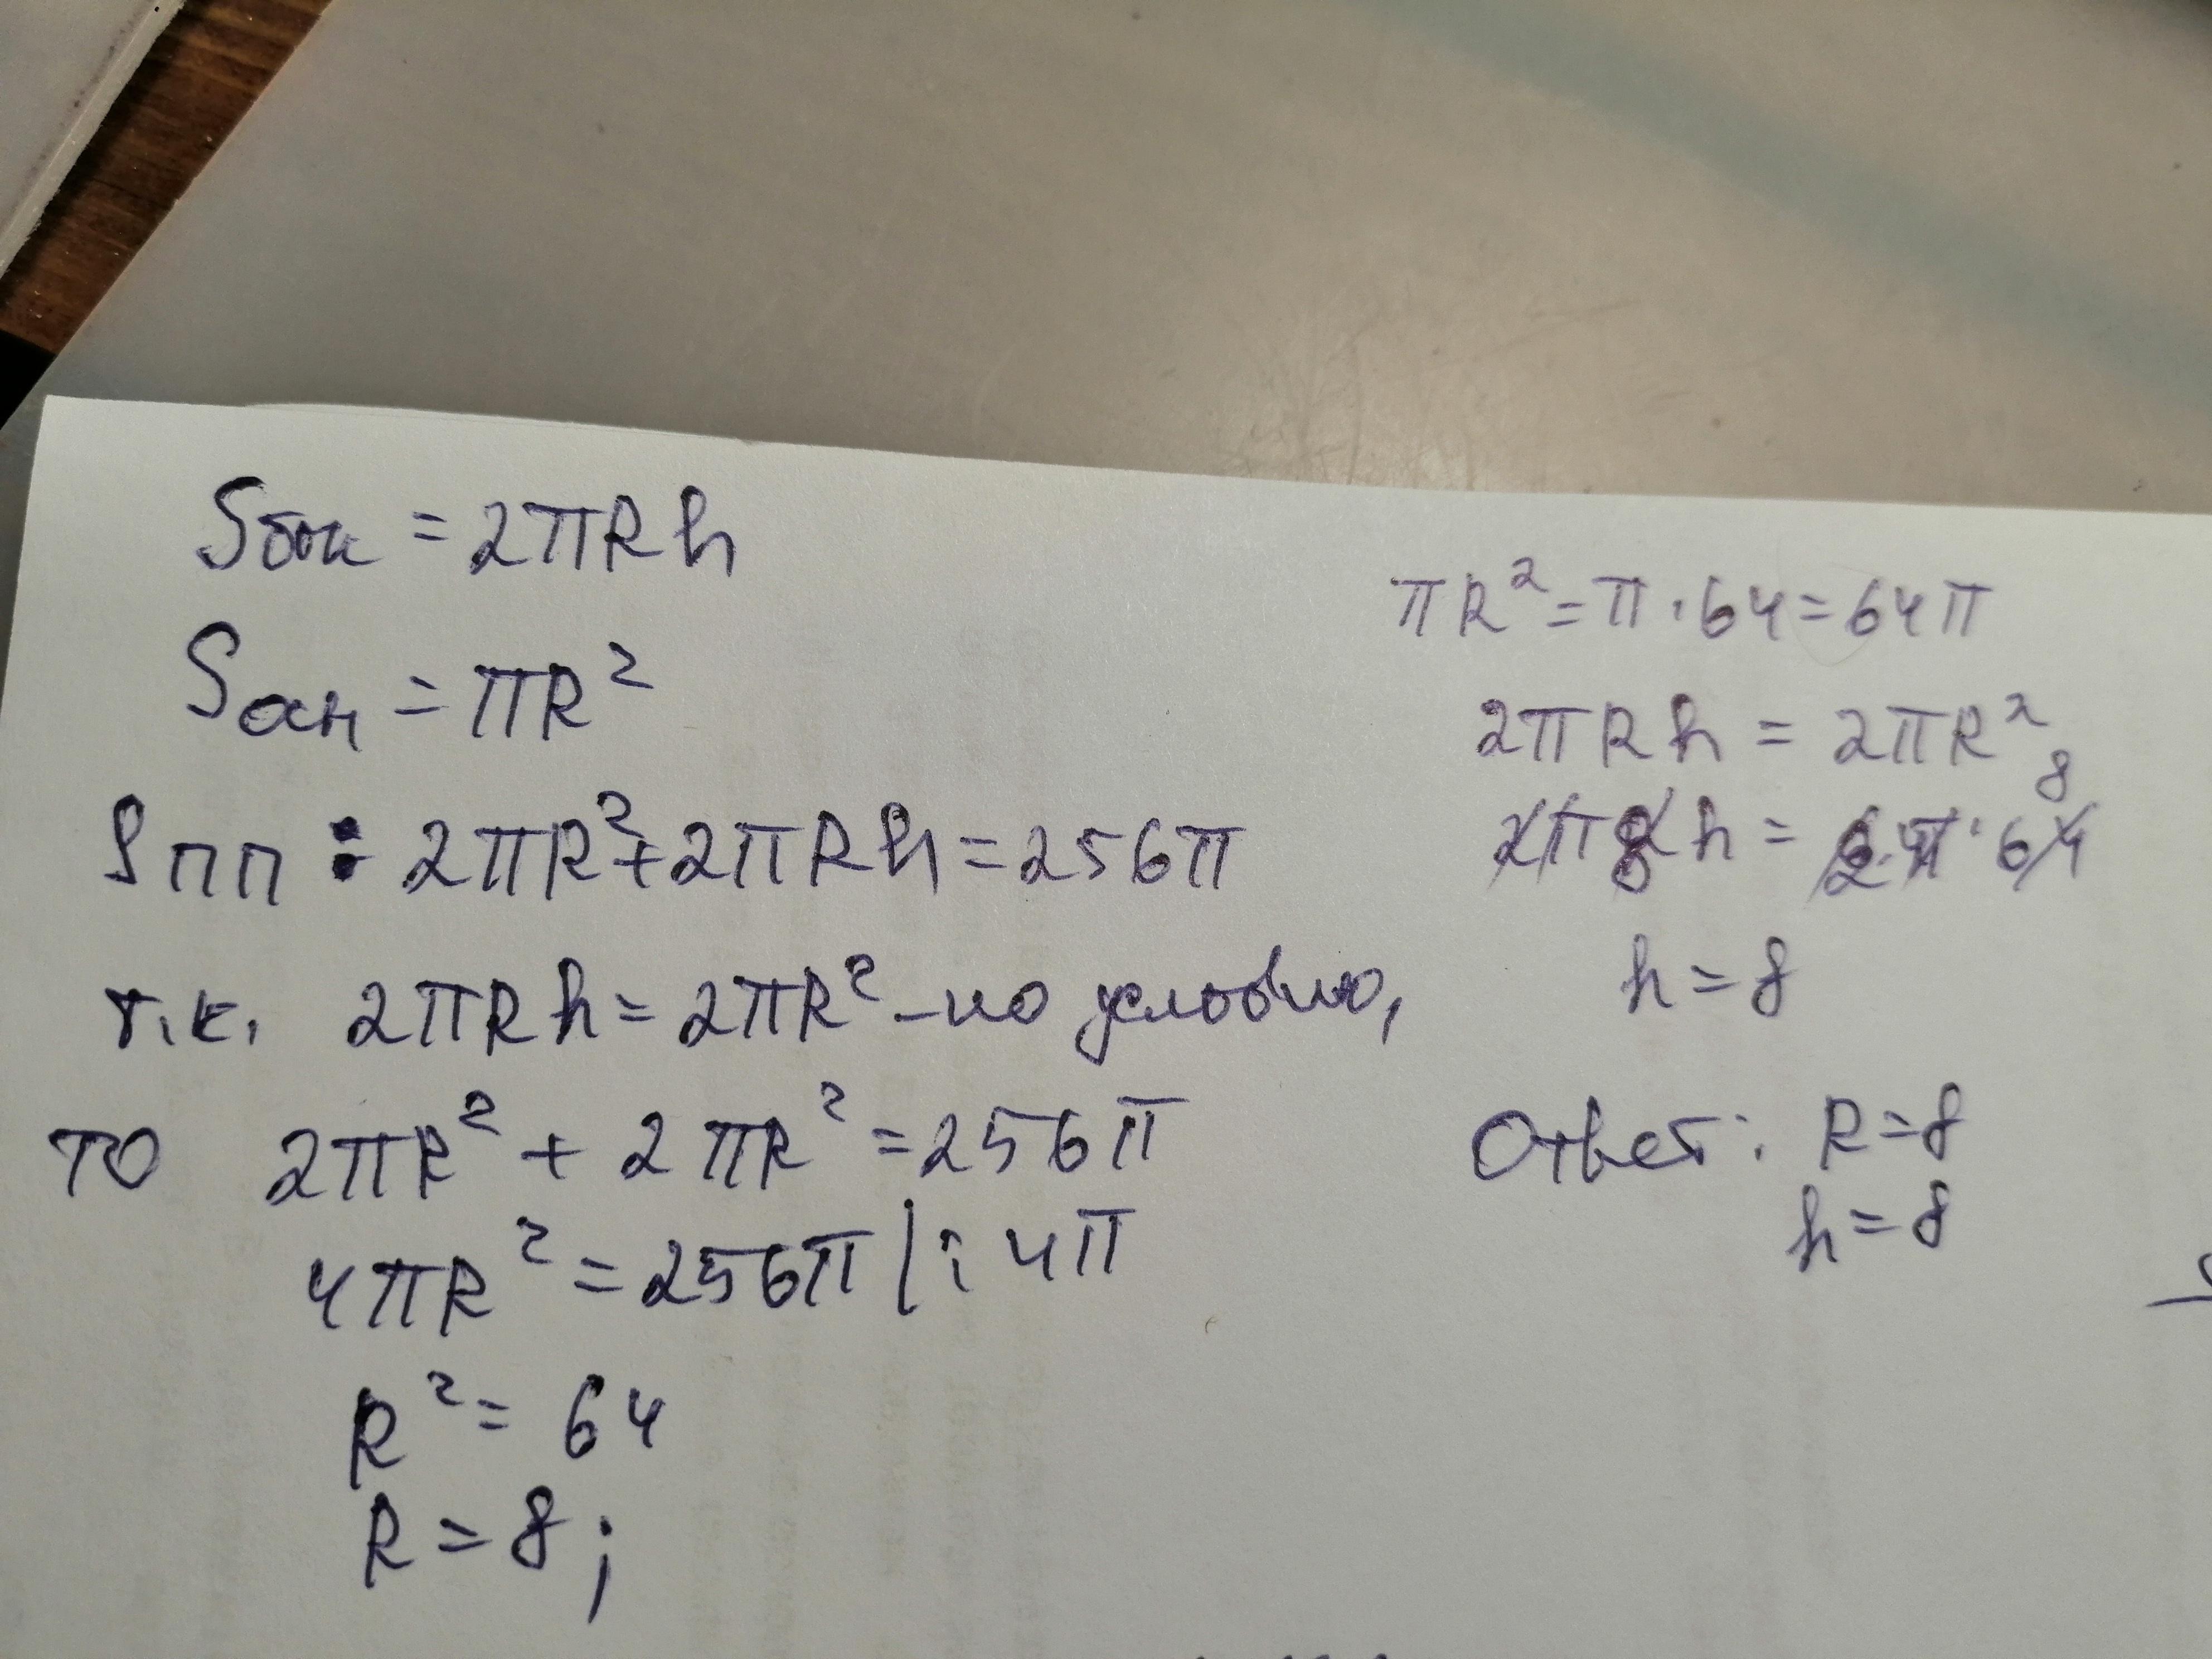 Sбок = 2πRh
Sосн = πR²
Sпп : 2πR² + 2πRh = 256π
т.к. 2πRh = 2πR² – по условию,
то 2πR² + 2πR² = 256π
4πR² = 256π | : 4π
R² = 64
R = 8;
πR² = π · 64 = 64π
2πRh = 2πR²
8
2π8h = 2·π·64
h = 8
Ответ: R = 8
h = 8